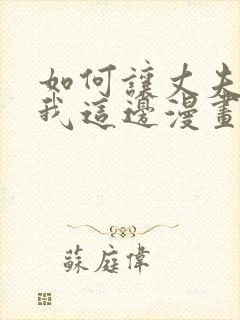 如何讓丈夫
我這邊漫畫
蘇庭偉